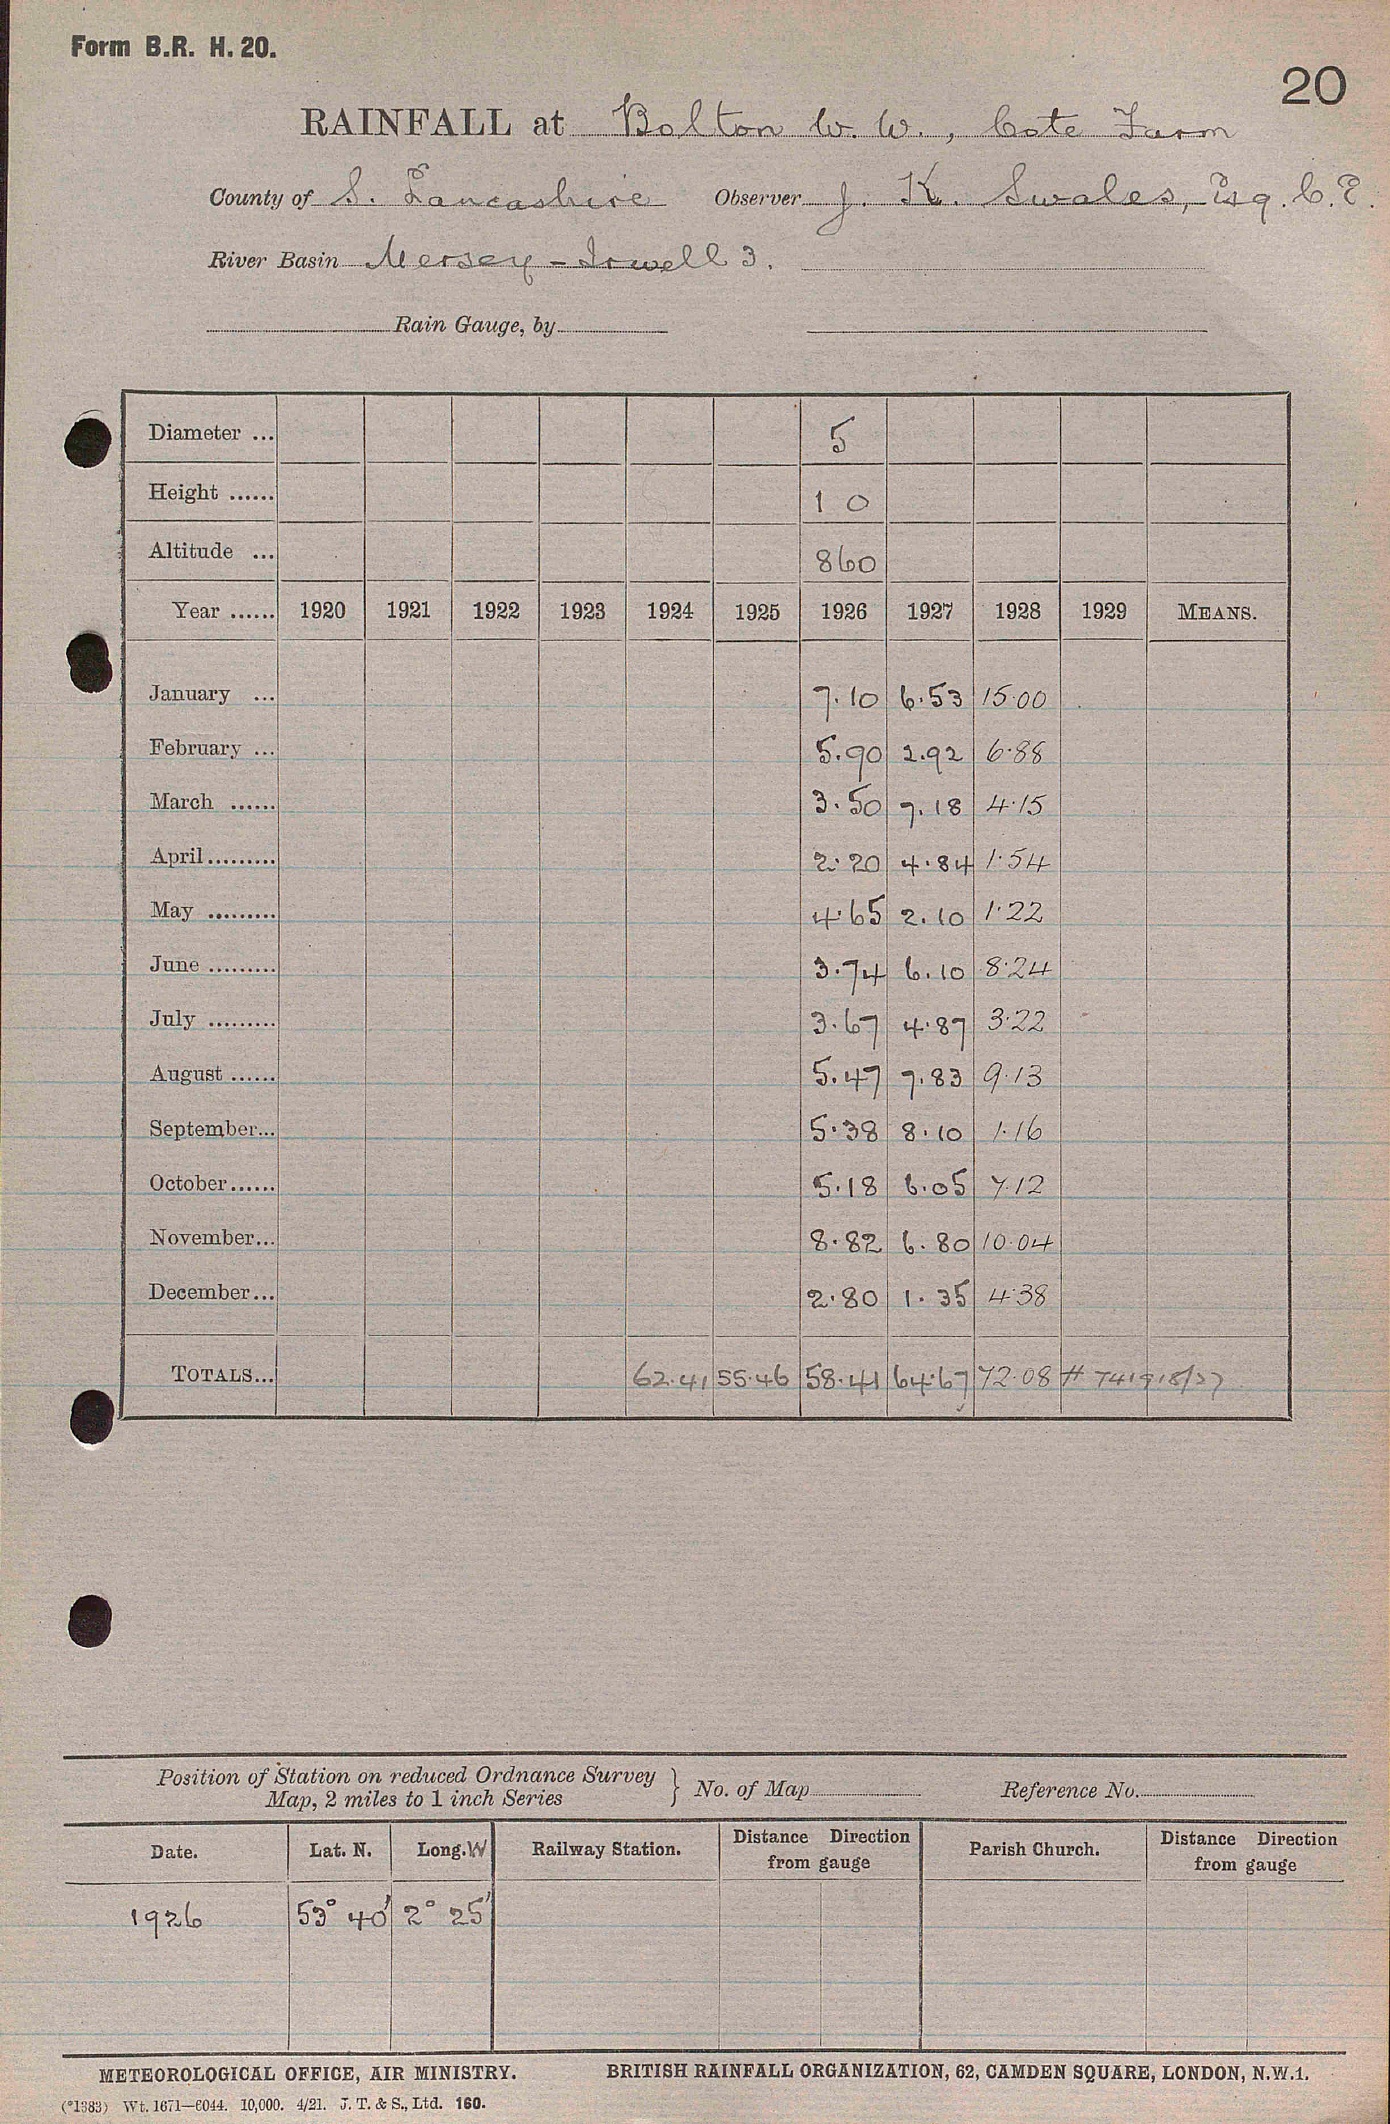 Form B.R. H. 20.
20
RAINFALL at Bolton W. W., Cote Farm
County of S. Lancashire Observer J. K. Swales, Esq. C.E.
River Basin Mersey - Irwell 3.
Rain Gauge, by
Diameter ... 5
Height ...... 1 0
Altitude ... 860
Year ...... 1920 1921 1922 1923 1924 1925 1926 1927 1928 1929 MEANS.
January ... 7.10 6.53 15.00
February ... 5.90 2.92 6.88
March ...... 3.50 7.18 4.15
April......... 2.20 4.84 1.54
May ......... 4.65 2.10 1.22
June ......... 3.74 6.10 8.24
July ......... 3.67 4.87 3.22
August ...... 5.47 7.83 9.13
September... 5.38 8.10 1.16
October...... 5.18 6.05 7.12
November... 8.82 6.80 10.04
December... 2.80 1.35 4.38
TOTALS... 62.41 55.46 58.41 64.67 72.08
Position of Station on reduced Ordnance Survey
Map, 2 miles to 1 inch Series } No. of Map Reference No.
Date. Lat. N. Long. W Railway Station. Distance Direction from gauge Parish Church. Distance Direction from gauge
1926 53° 40' 2° 25'
METEOROLOGICAL OFFICE, AIR MINISTRY. BRITISH RAINFALL ORGANIZATION, 62, CAMDEN SQUARE, LONDON, N.W.1.
(*1383) Wt. 1671—6044. 10,000. 4/21. J. T. & S., Ltd. 160.